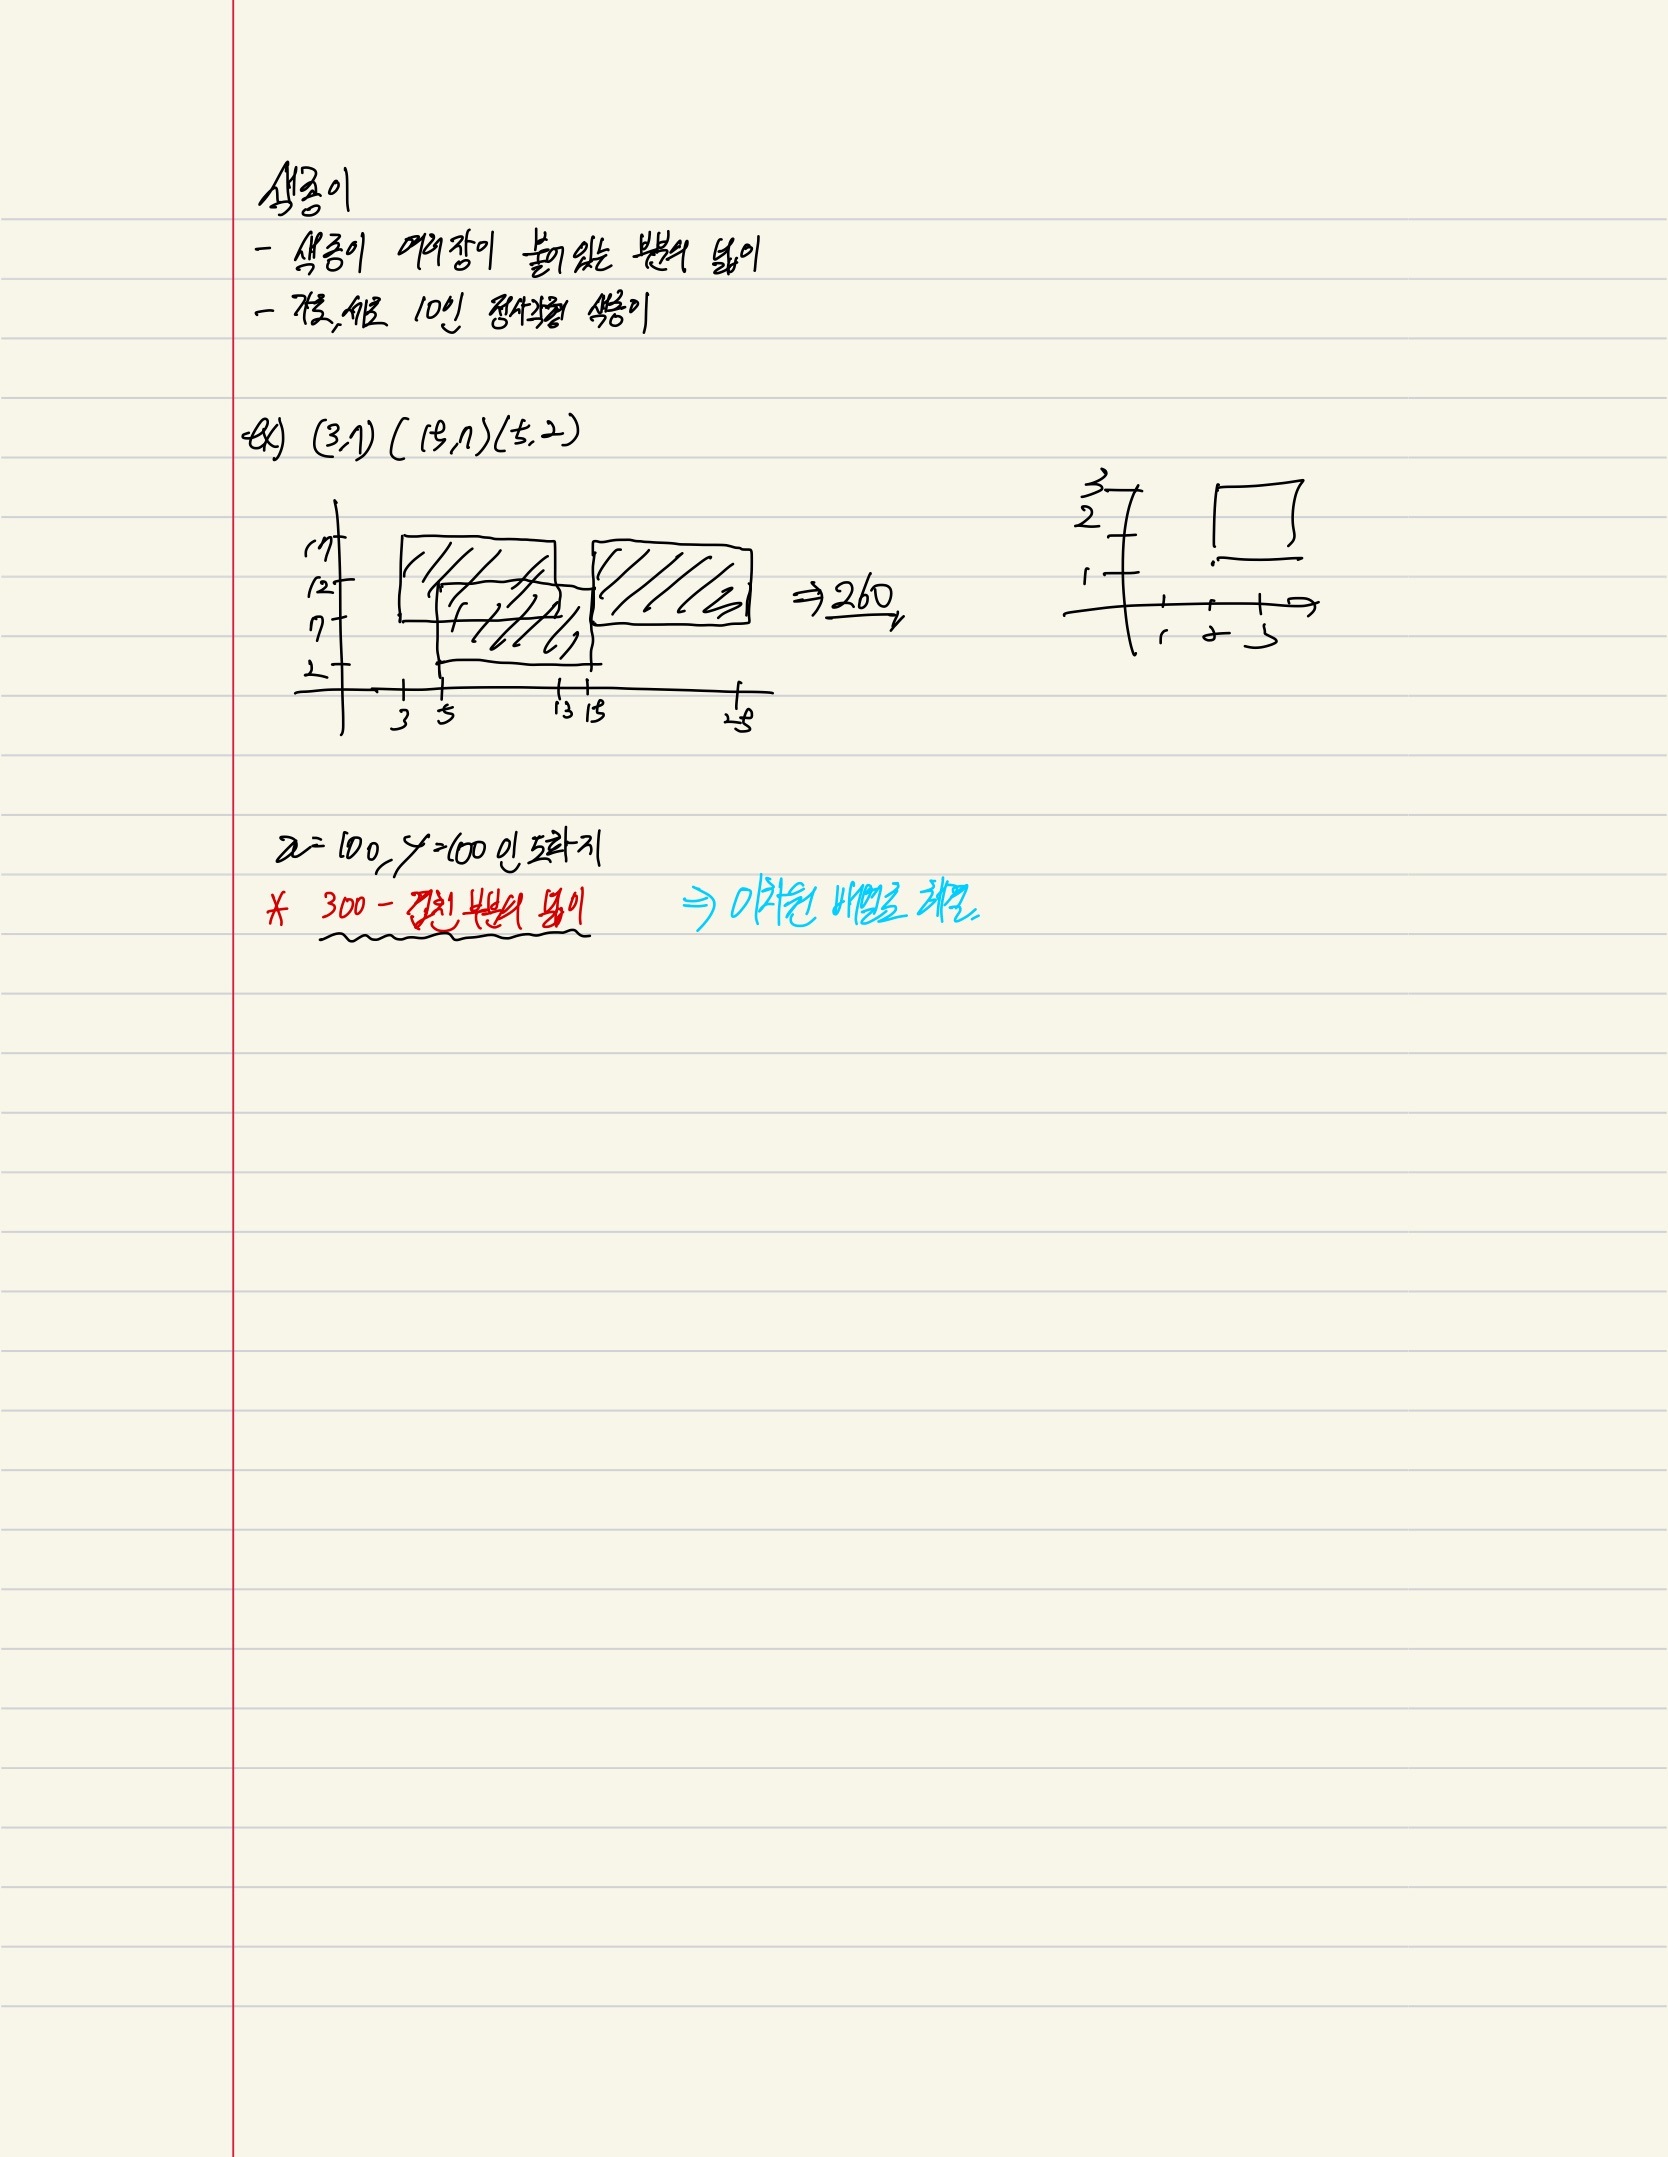 색종이
- 색종이 여러장이 붙어 있는 부분의 넓이
- 가로, 세로 10인 정사각형 색종이
ex) (3,7) (15,7) (5,2)
17
12
7
2
3 5 13 15 25
⇒ 260
3
2
1
1 2 3
x=100, y=100인 도화지
* 300 - 겹친 부분의 넓이 ⇒ 이차원 배열로 해결.